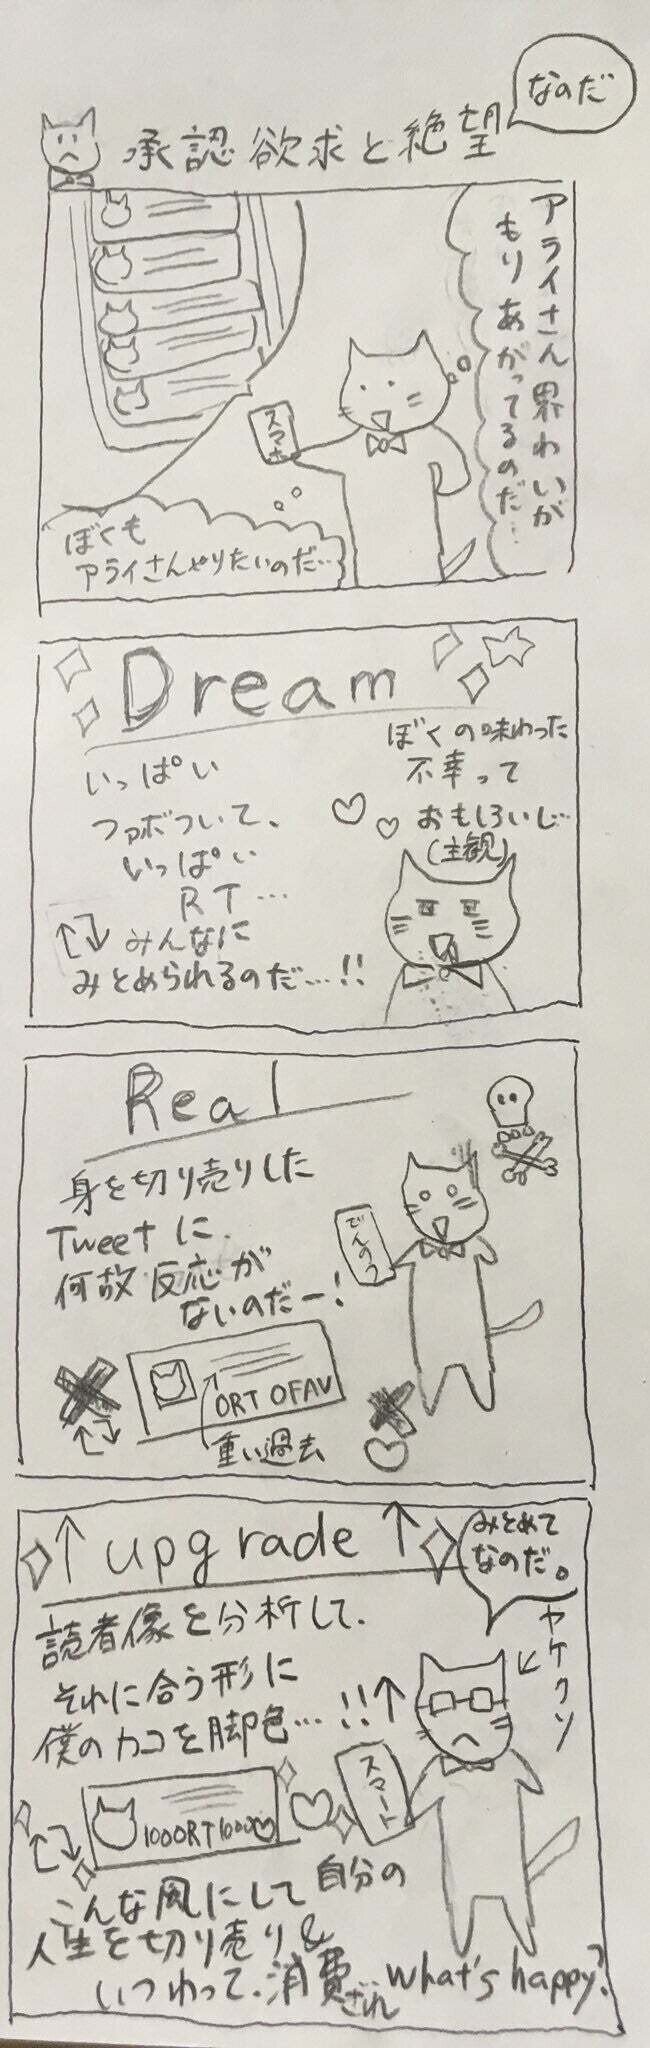 承認欲求と絶望
なのだ
アライさん界わいが
もりあがってるのだ…
スマホ
ぼくも
アライさんやりたいのだ…
Dream
いっぱい
ファボついて、
いっぱい
RT…
みんなに
みとめられるのだ…!!
ぼくの味わった
不幸って
おもしろいし…
(主観)
Real
身を切り売りした
Tweetに
何故反応が
ないのだー!
でんのう
0RT 0FAV
重い過去
↑upgrade↑
みとめて
なのだ。
ヤケクソ
読者像を分析して、
それに合う形に
僕のカコを脚色…!!↑
スマート
1000RT1000♡
こんな風にして自分の
人生を切り売り&
いつわって、消費され…what's happy?